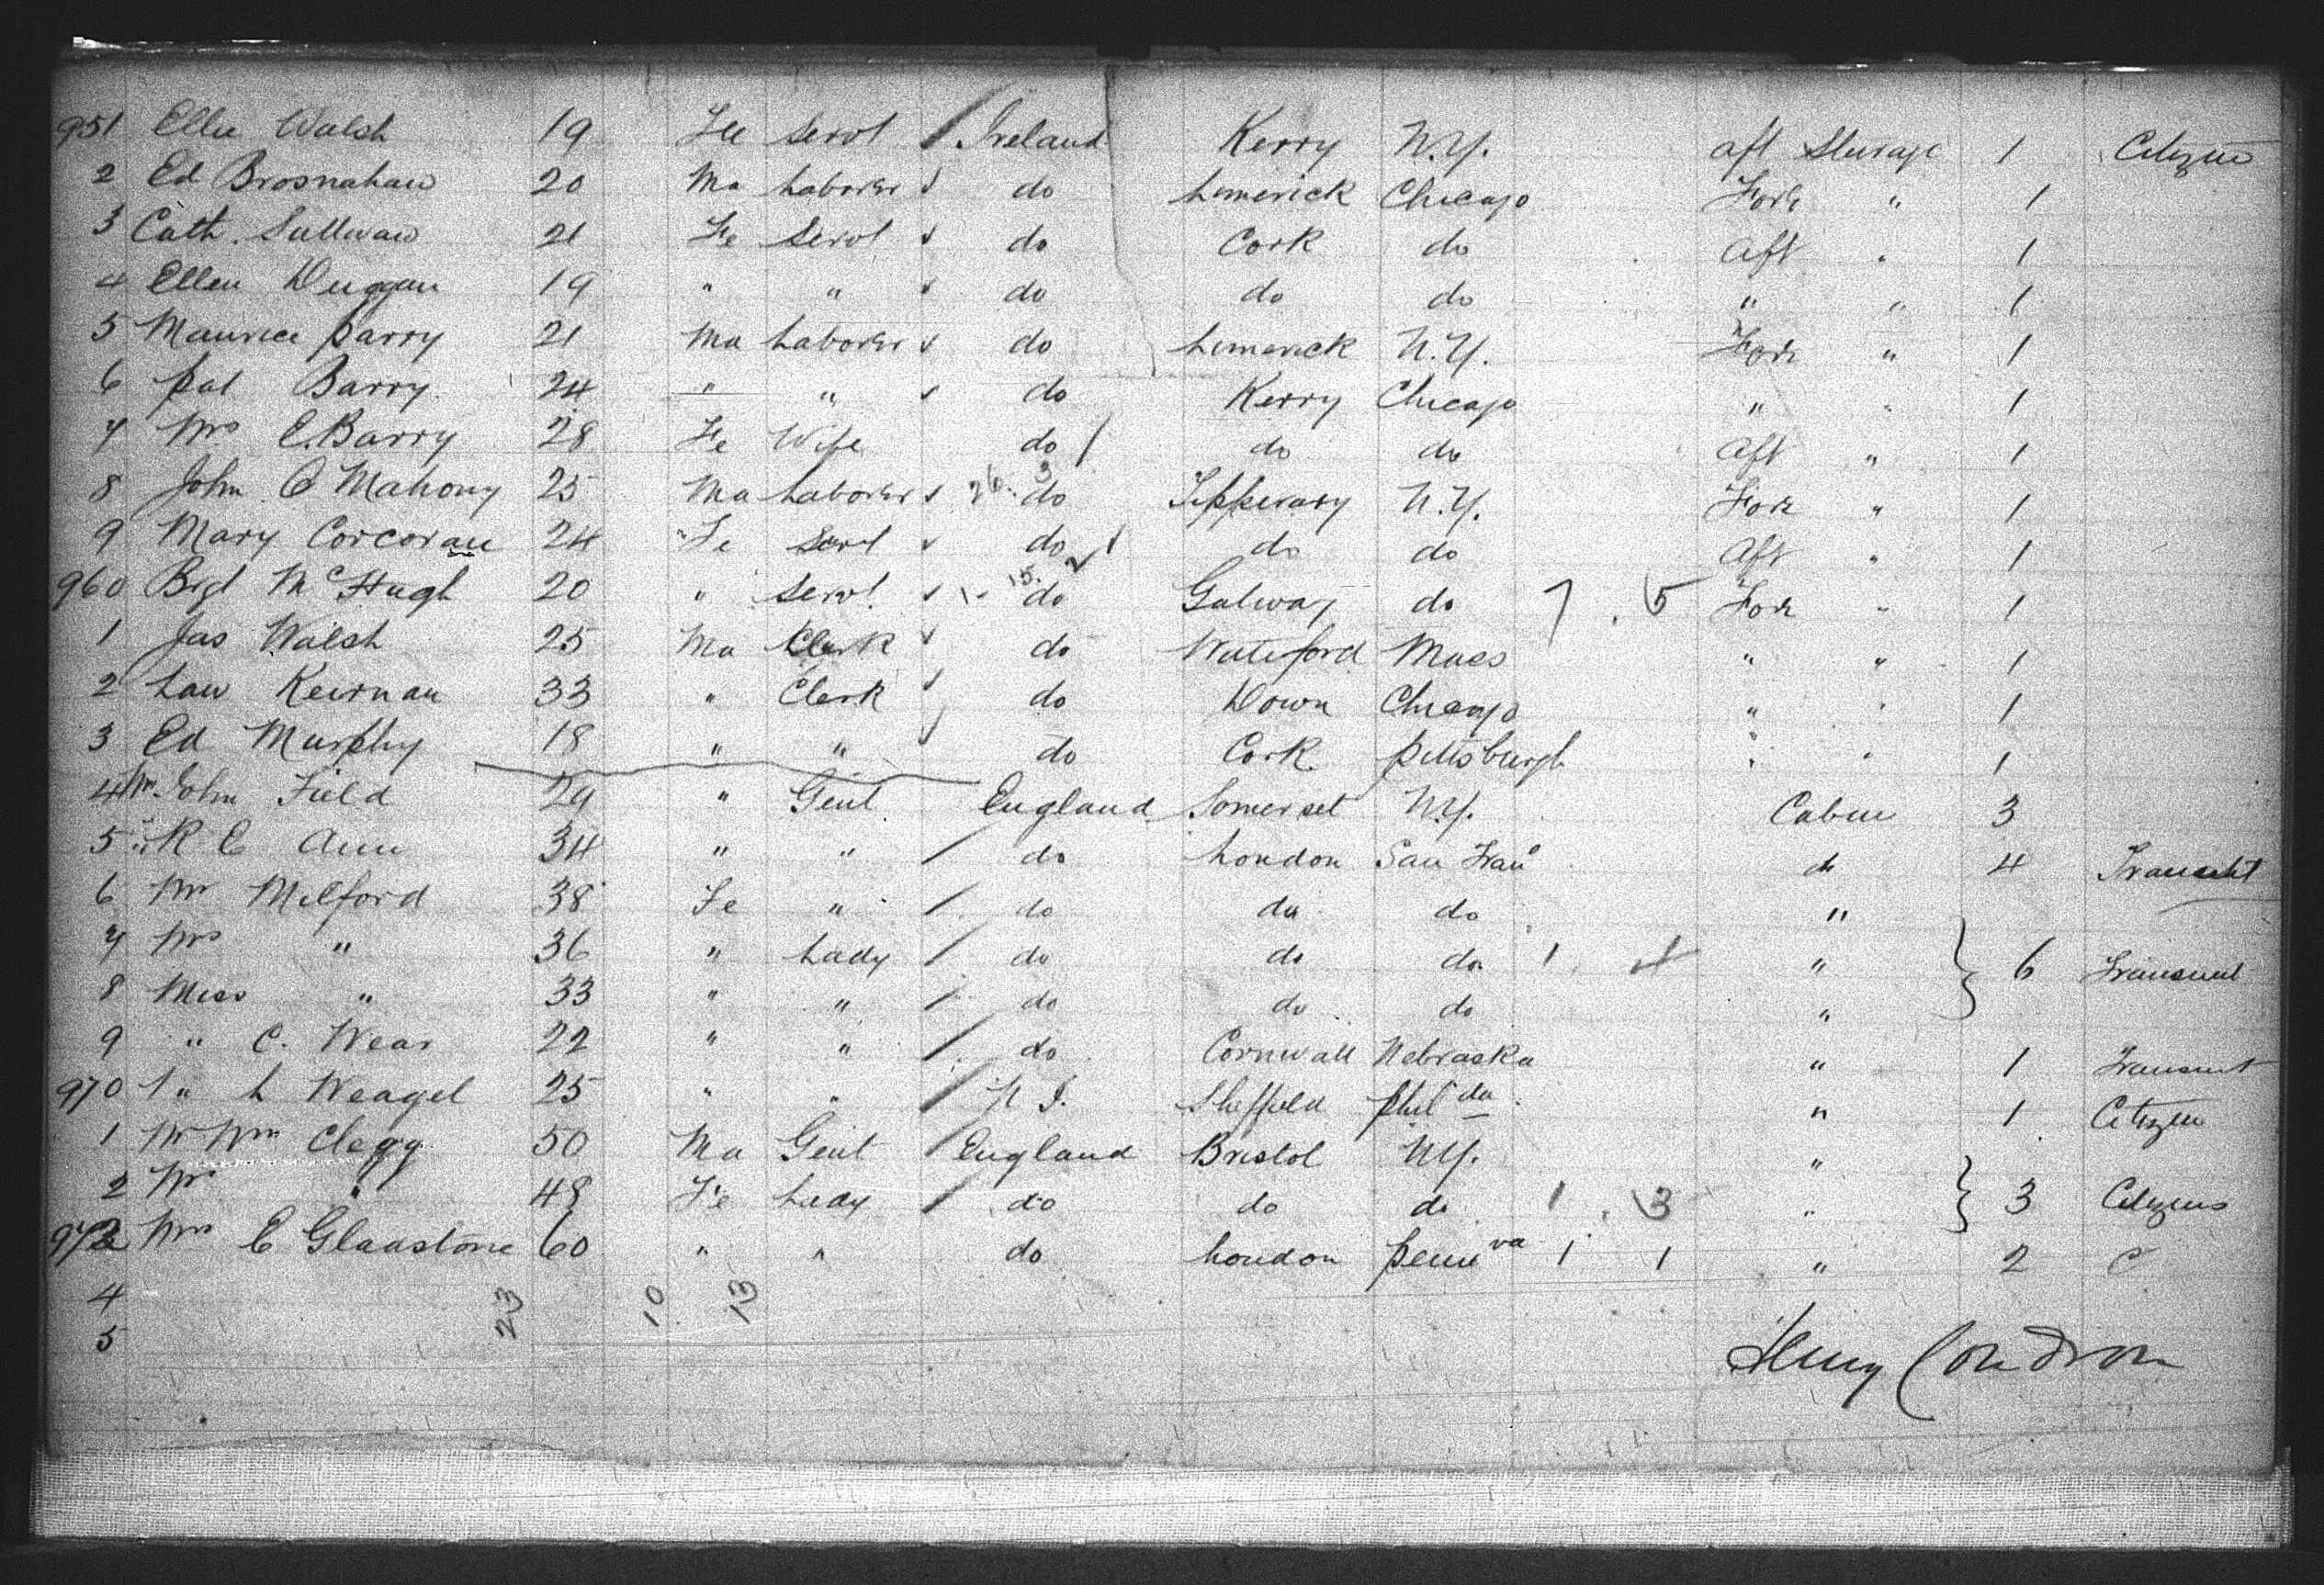 951 Ellie Walsh 19 Fe Servt / Ireland Kerry N.Y. aft Sterage 1 Citizen
2 Ed Brosnahan 20 Ma Laborer do Limerick Chicago Fore " 1
3 Cath. Sullivan 21 Fe Servt do Cork do Aft " 1
4 Ellen Duggan 19 " " do do do " " 1
5 Maurice Parry 21 Ma Laborer do Limerick N.Y. Fore " 1
6 Pat Barry 24 " " do Kerry Chicago " " 1
7 Mrs E. Barry 28 Fe Wife do / do do Aft " 1
8 John O Mahony 25 Ma Laborer 26. 3 do Tipperary N.Y. Fore " 1
9 Mary Corcoran 24 Fe Servt do do do Aft " 1
960 Bgt McHugh 20 " Servt 15. 2 do Galway do 7 . 5 Fore " 1
1 Jas Walsh 25 Ma Clerk do Waterford Mass " " 1
2 Law Keirnan 33 " Clerk do Down Chicago " " 1
3 Ed Murphy 18 " " do Cork Pittsburgh " " 1
4 Mr John Field 29 " Gent England Somerset N.Y. Cabin 3
5 " R E Ann 34 " " / do London San Fran do 4 Transient
6 Mr Milford 38 Fe " / do do do "
7 Mrs " 36 " Lady / do do do 1 . 4 " } 6 Transient
8 Miss " 33 " " / do do do "
9 " C. Wear 22 " " / do Cornwall Nebraska " 1 Transient
970 " L Weagel 25 " " / Sheffield Phil da " 1 Citizen
1 Mr Wm Clegg 50 Ma Gent / England Bristol N.Y. "
2 Mrs " 48 Fe Lady / do do do 1 . 3 " } 3 Citizens
973 Mrs E Glaastone 60 " " do London Penn va 1 1 " 2 C
4
5
23 10 13
Henry Condron